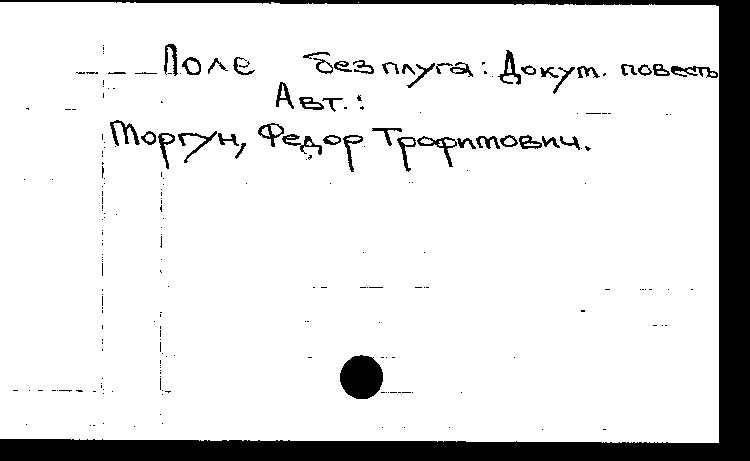 Поле без плуга: Докут. повесть
Авт.:
Моргун, Федор Трофимович.